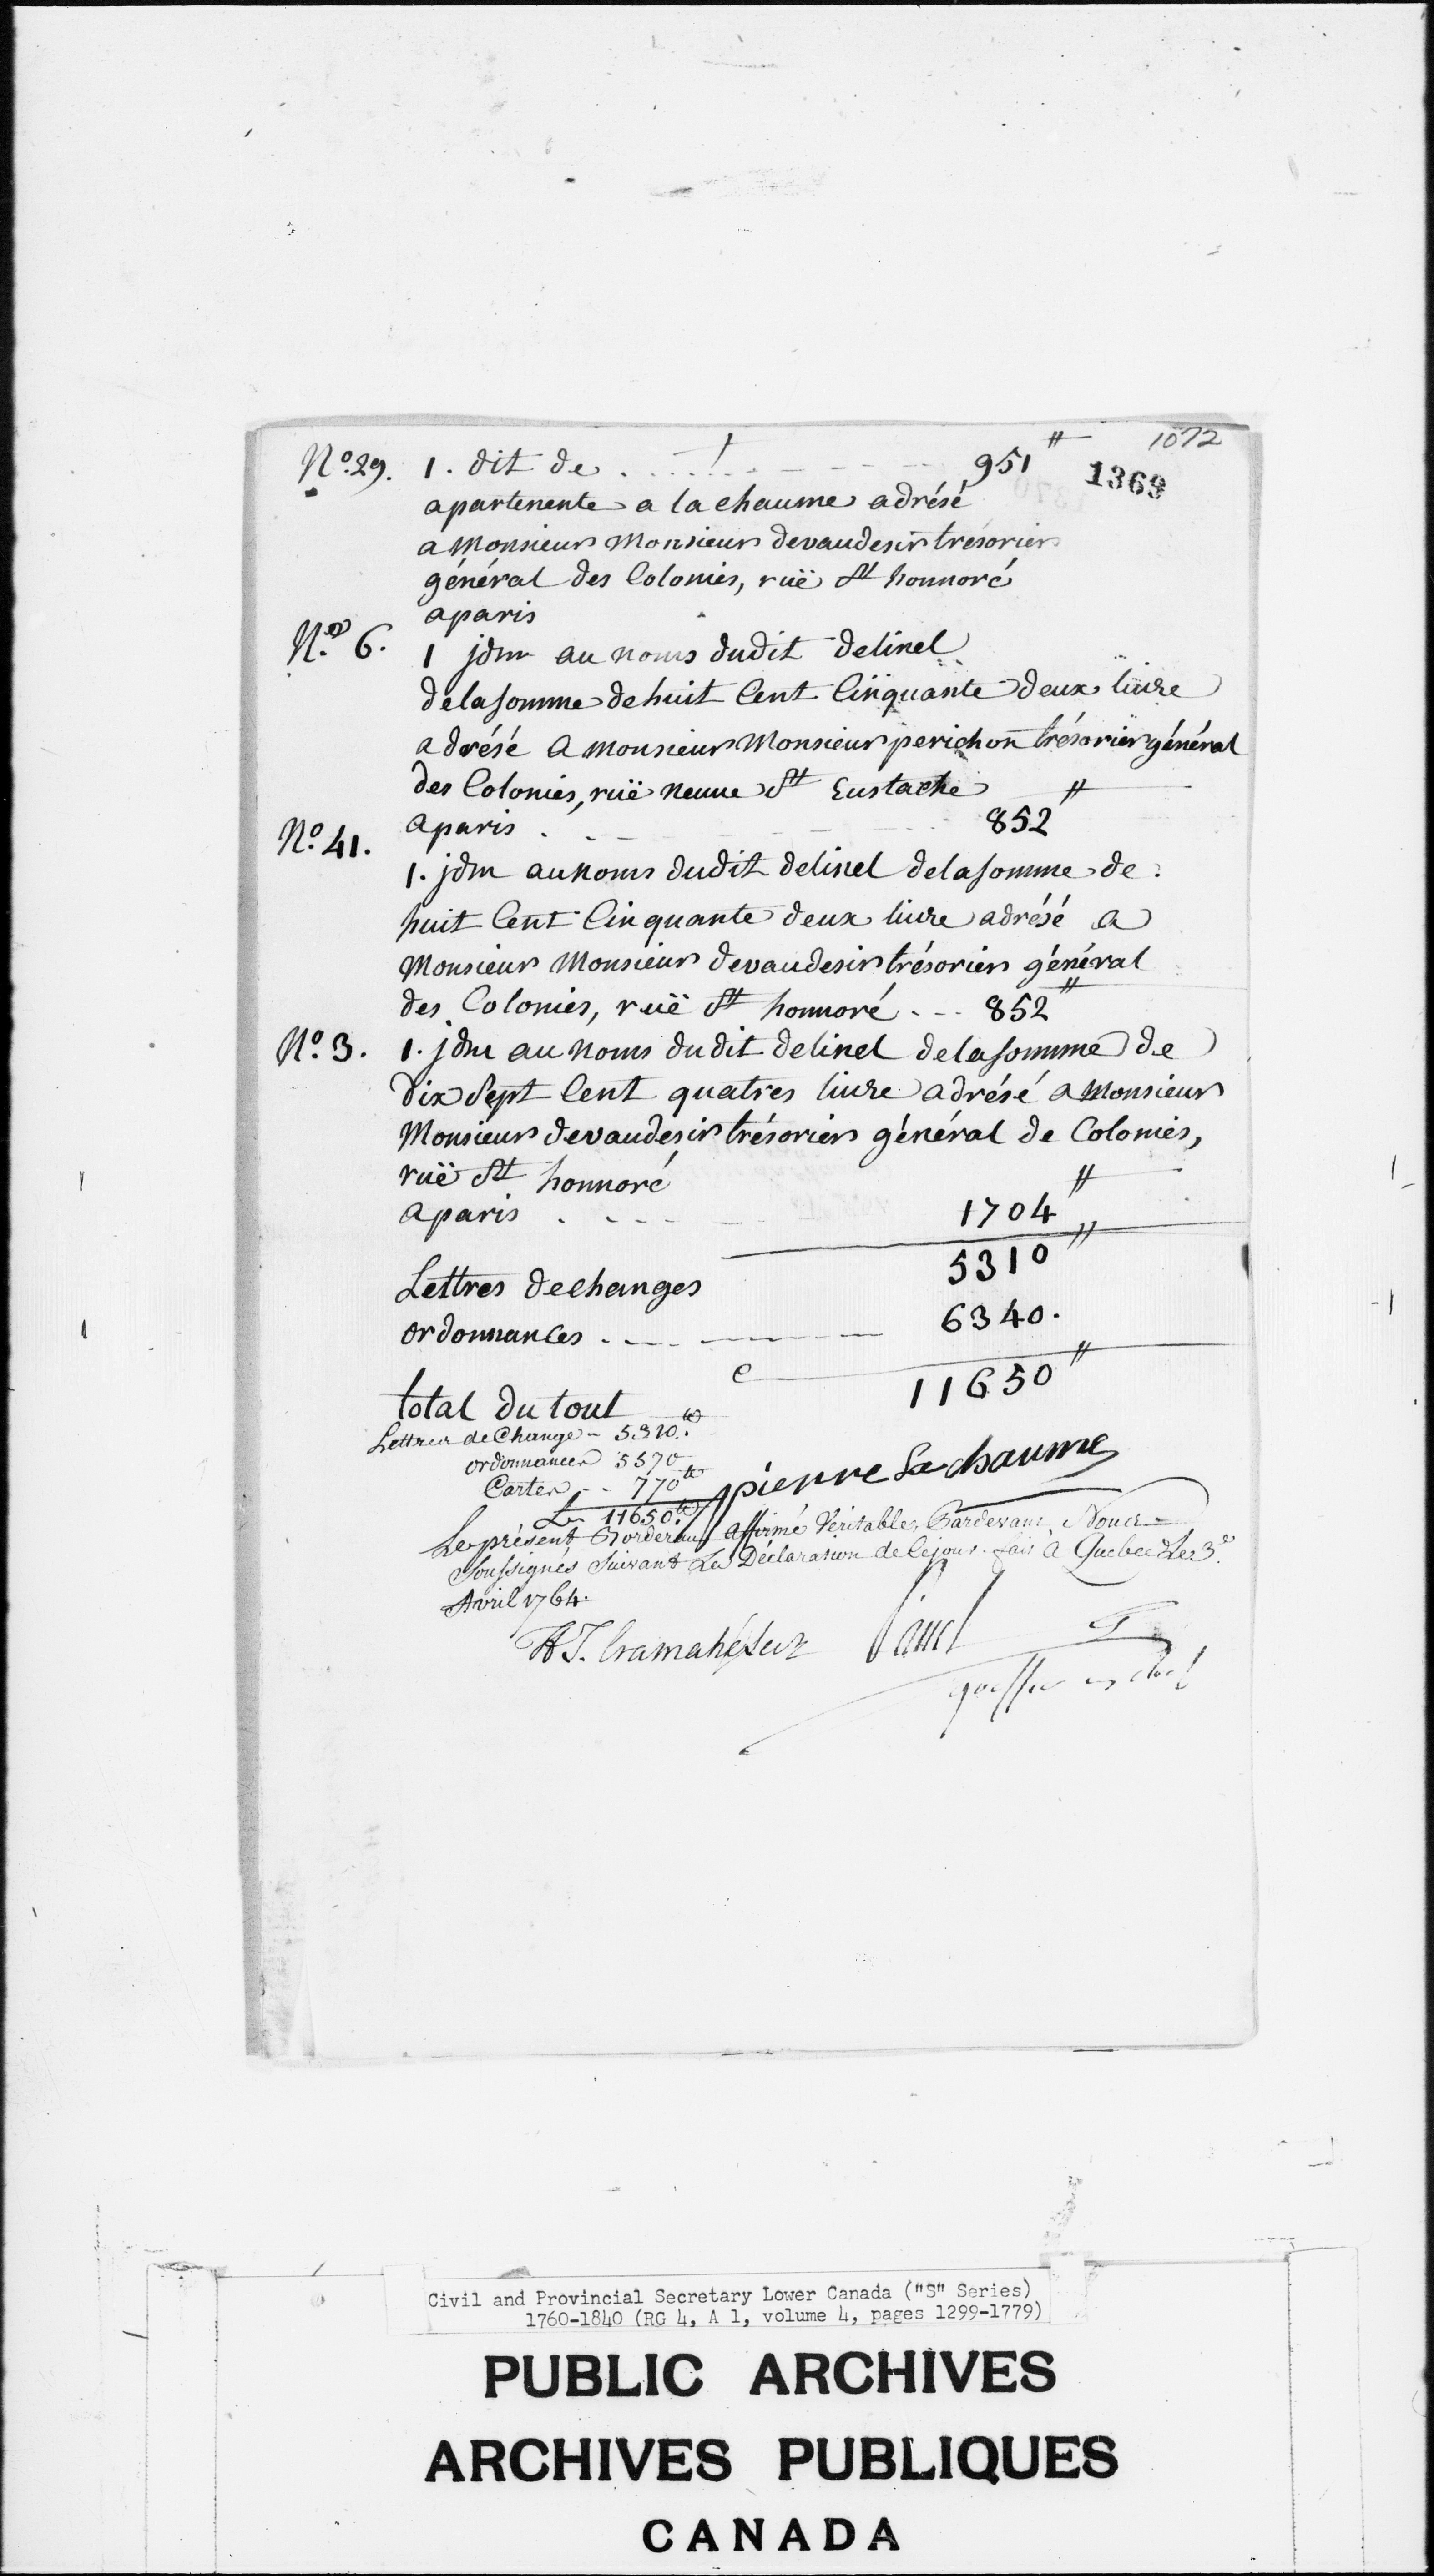 1072
1369
Nº 29. 1. dit de . . . . . 951 ₶
apartenente a la chaume adrésé
a Monsieur Monsieur devaudesir trésorier
général des Colonies, ruë St honnoré
a paris
Nº 6. 1 jdm au noms dudit delinel
de la somme de huit Cent Cinquante deux livre
adrésé a Monsieur Monsieur perichon trésorier général
des Colonies, ruë neuue St Eustache
a paris . . 852 ₶
Nº 41.
1. jdm au noms dudit delinel de la somme de
huit Cent Cinquante deux livre adrésé a
Monsieur Monsieur devaudesir trésorier général
des Colonies, ruë St honnoré . - - 852 ₶
Nº 3. 1. jdm au noms dudit delinel de la somme de
Dix Sept Cent quatres livre adrésé a Monsieur
Monsieur devaudesir trésorier général de Colonies,
ruë St honnoré
a paris . . . . 1704 ₶
5310 ₶
Lettres dechanges
ordonnances . - - - 6340.
11650 ₶
total du tout
Lettres de Change - 5310 ₶
ordonnances 5570
Cartes - - 770 ₶
11650 ₶
pierre La chaume
Le présent Bordereau affirmé Veritable, Pardevant Nous
Soussignés Suivant La Déclaration de Cejour. fait à Quebec Le 3e
Avril 1764.
H T. Cramahé
Panet
greffier en chef
Civil and Provincial Secretary Lower Canada ("S" Series)
1760-1840 (RG 4, A 1, volume 4, pages 1299-1779)
PUBLIC ARCHIVES
ARCHIVES PUBLIQUES
CANADA